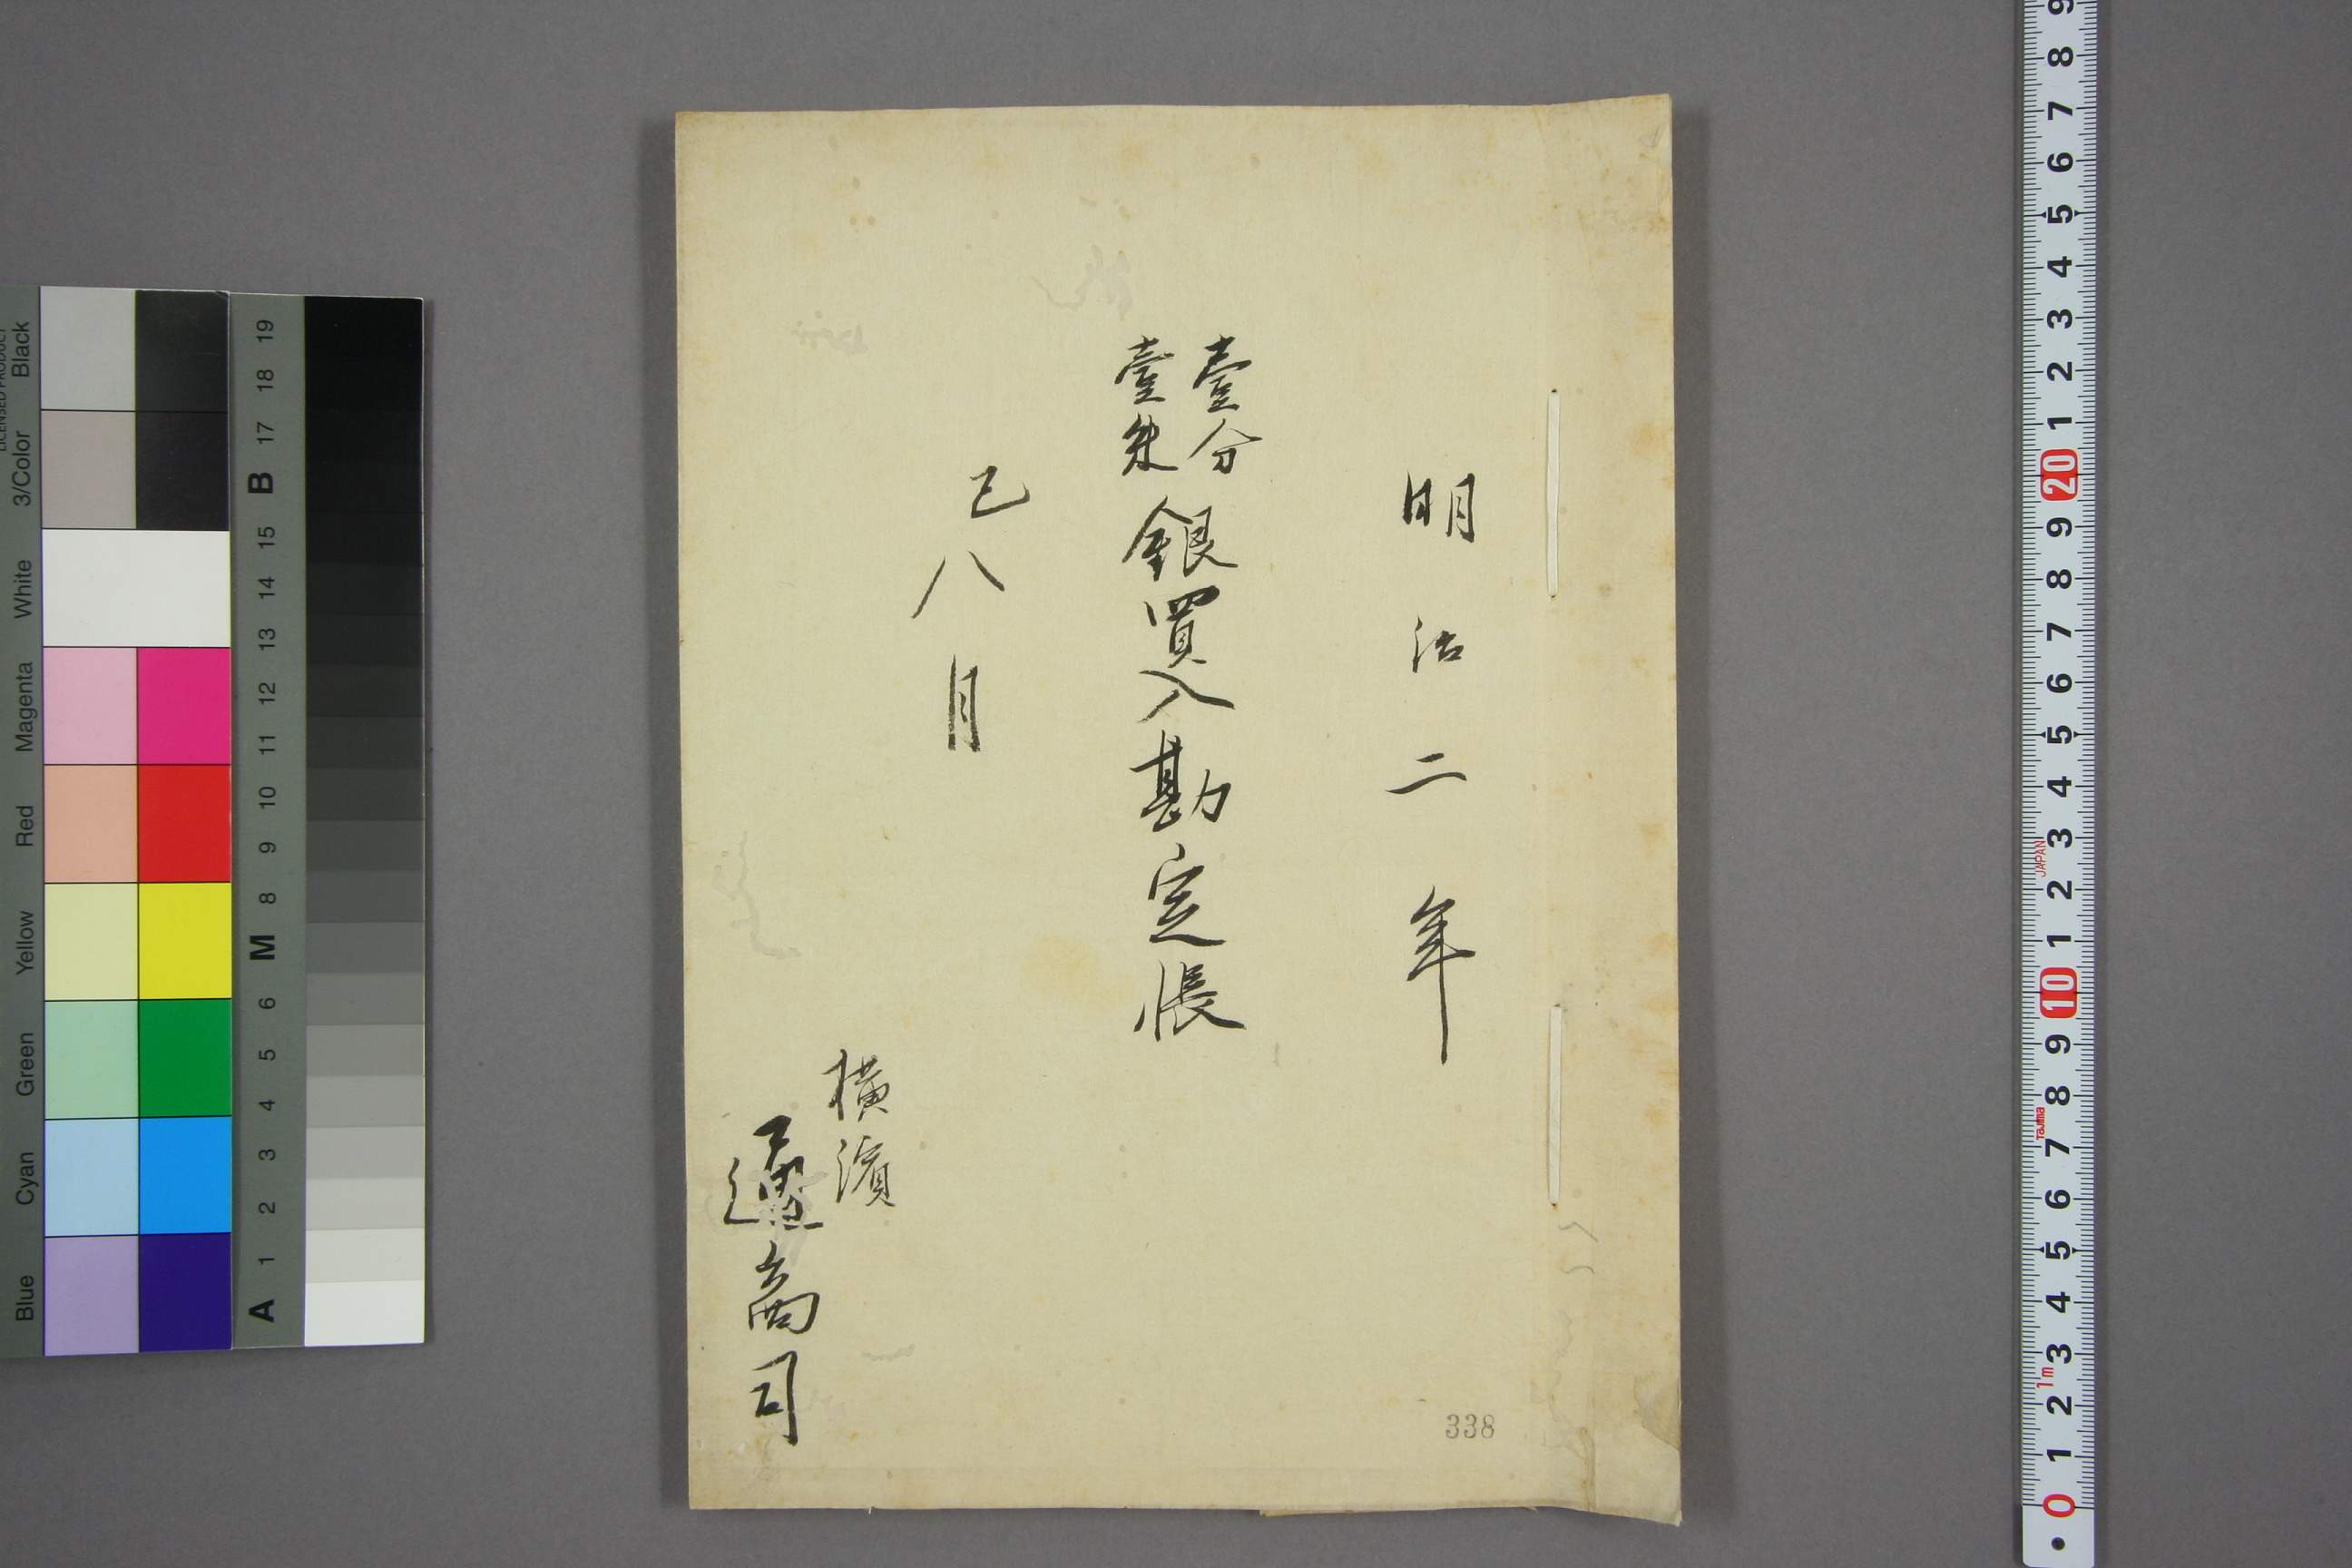 明治二年
壹分
壹朱
銀買入勘定帳
巳八月
横濱
通商司
338
Black
3/Color
White
Magenta
Red
Yellow
Green
Cyan
Blue
19
18
17
B
15
14
13
12
11
10
9
8
M
6
5
4
3
2
1
A
9
8
7
6
5
4
3
2
1
20
9
8
7
6
5
4
3
JAPAN
2
1
10
9
8
Tajima
7
6
5
4
3
1m
2
1
0